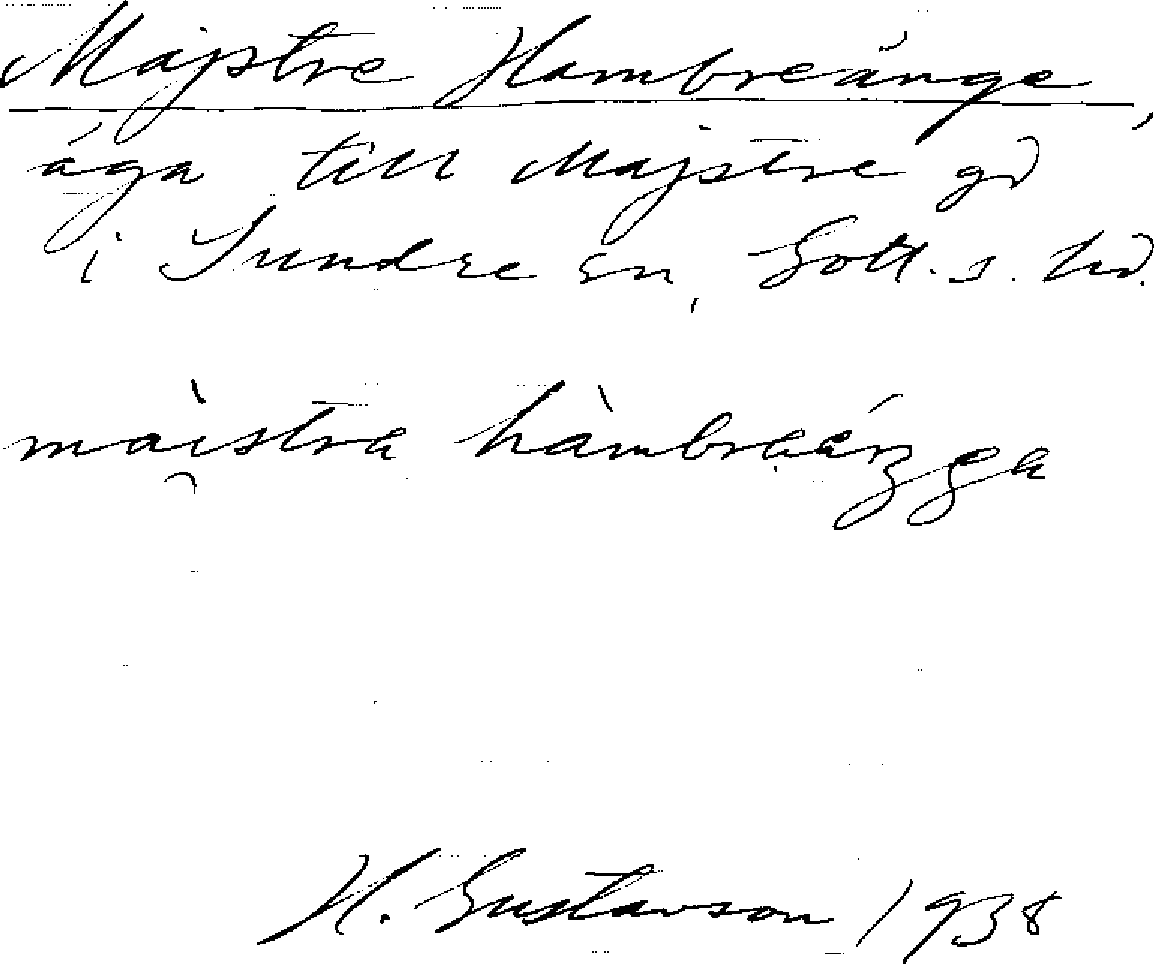 Majstre Hambreänge,
äga till Majstre gd
i Sundre sn, Gotl. s. hd.
màistra hàmbraäŋga
H. Gustavson 1938